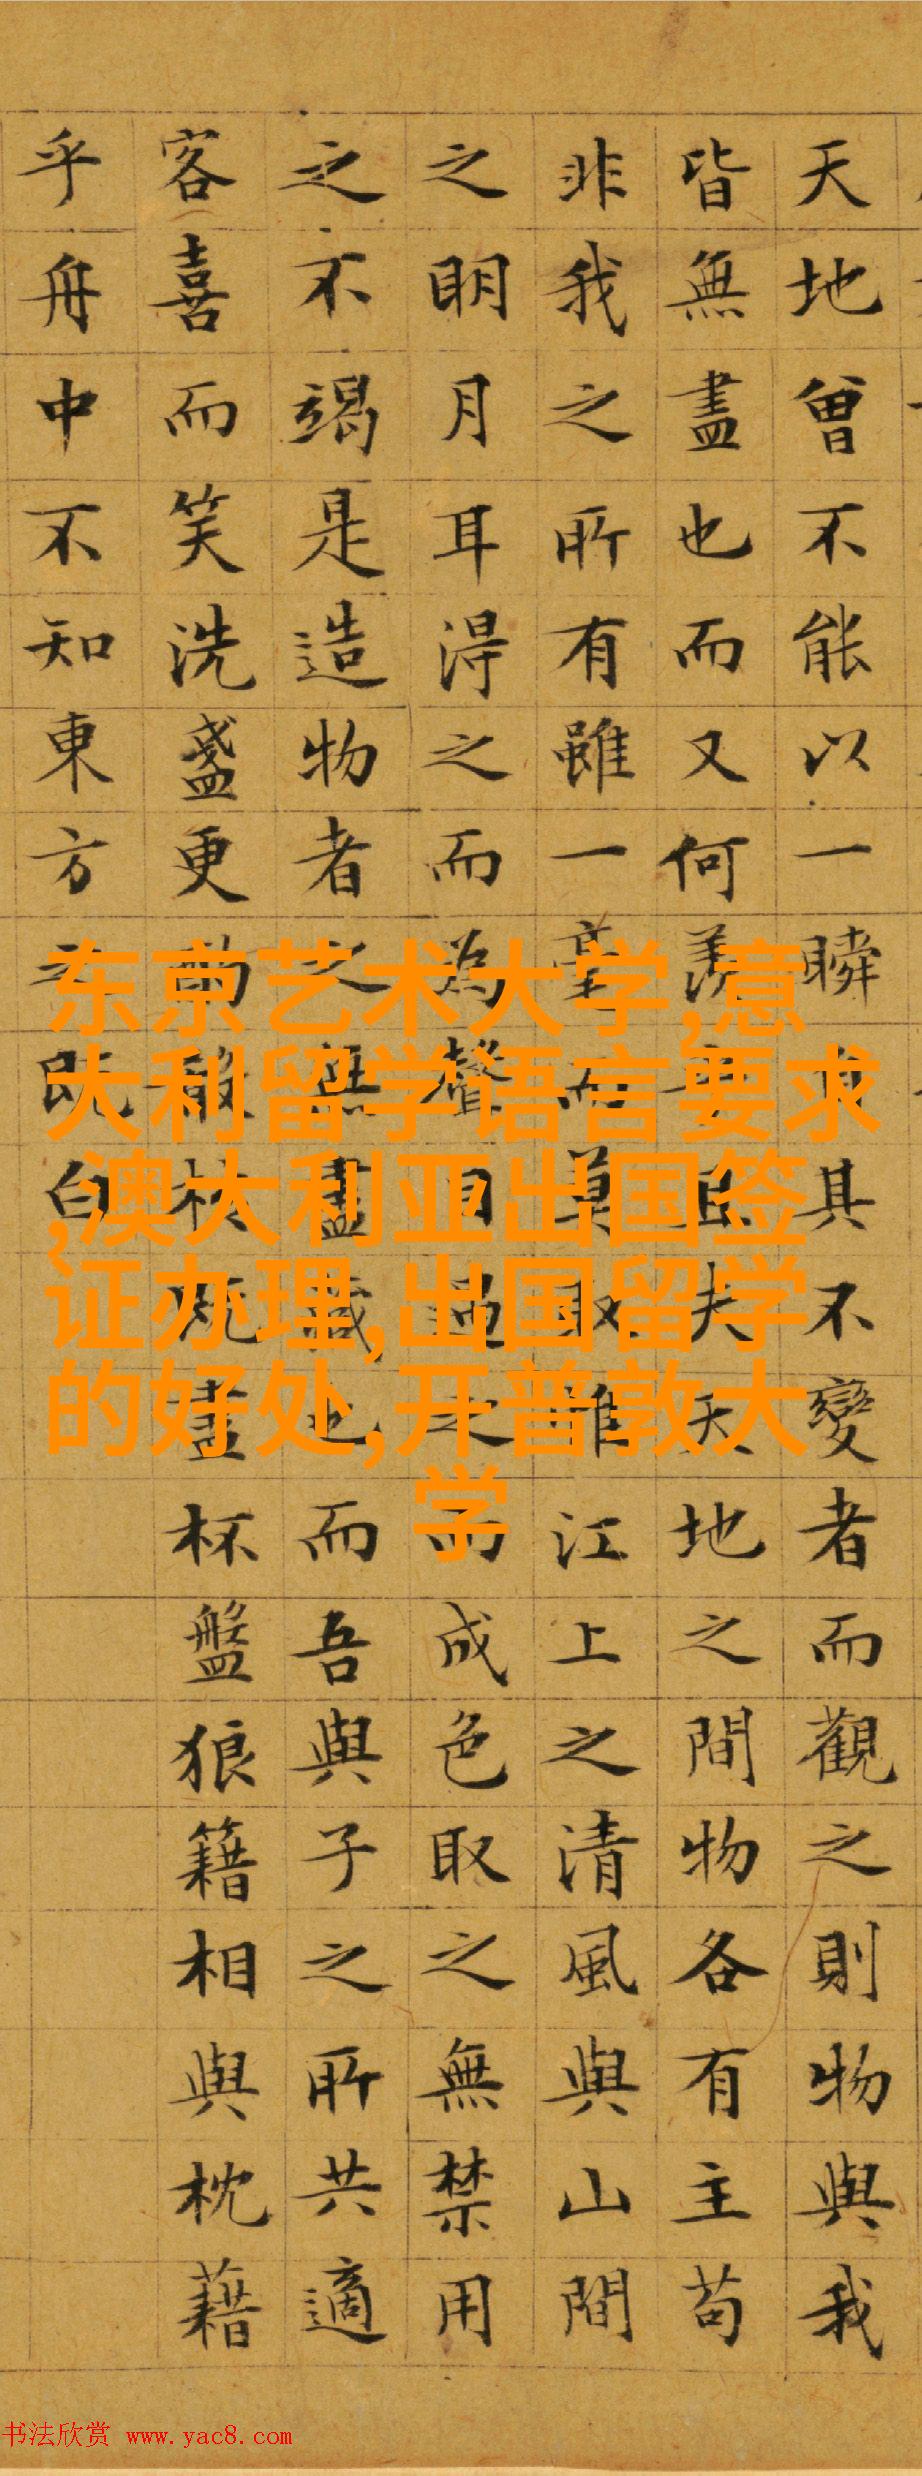 天地曾不能以一瞬自其不變者而觀之則物與我
皆無盡也而又何羨乎且夫天地之間物各有主苟
非我之所有雖一毫而莫取惟江上之清風與山間
之明月耳得之而為聲目遇之而成色取之無禁用
之不竭是造物者之無盡藏也而吾與子之所共適
客喜而笑洗盞更酌殽核既盡杯盤狼籍相與枕藉
乎舟中不知東方之既白
东京艺术大学,意
大利留学语言要求
,澳大利亚出国签
证办理,出国留学
的好处,开普敦大
学
书法欣赏 www.yac8.com